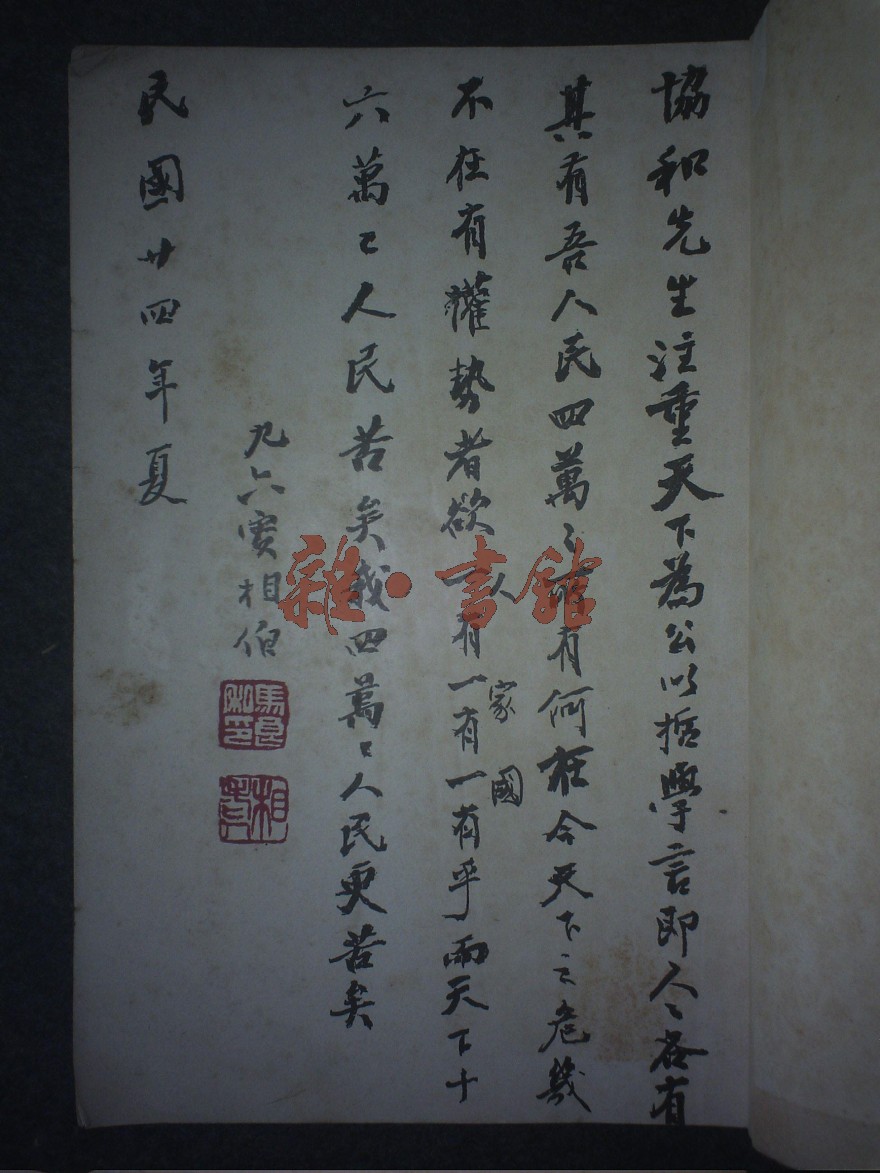 協和先生注重天下為公以哲學言即人〻各有
其有吾人民四萬〻所有何在今天下之危幾
不在有權勢者欲一人有一家有一國有乎而天下十
六萬〻人民苦矣我四萬〻人民更苦矣
九六叟相伯
馬良私印
相老人
民國廿四年夏
雜·書館